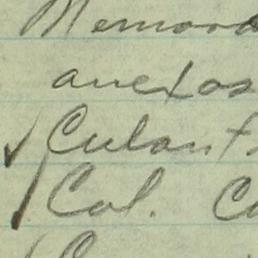 Memora
anexos
Culant
Col. Co